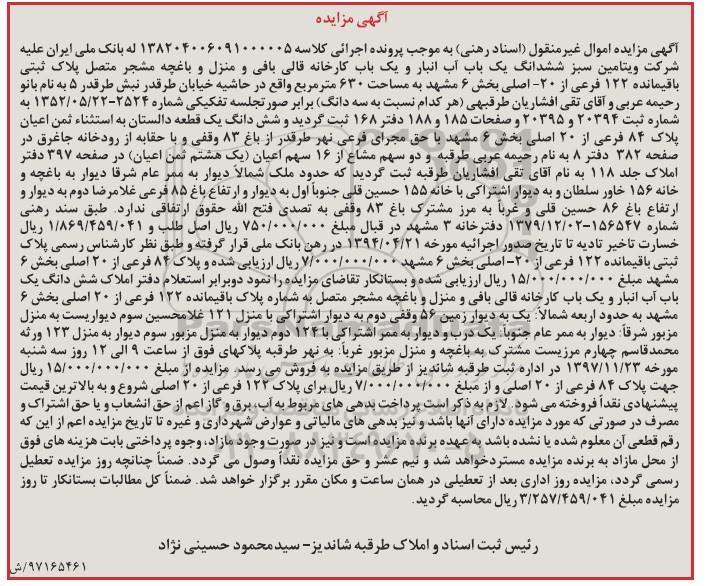 آگهی مزایده
آگهی مزایده اموال غیرمنقول (اسناد رهنی) به موجب پرونده اجرائی کلاسه ۱۳۸۲۰۴۰۰۶۰۹۱۰۰۰۰۰۵ له بانک ملی ایران علیه
شرکت ویتامین سبز ششدانگ یک باب آب انبار و یک باب کارخانه قالی بافی و منزل و باغچه مشجر متصل پلاک ثبتی
باقیمانده ۱۲۲ فرعی از ۲۰- اصلی بخش ۶ مشهد به مساحت ۶۳۰ مترمربع واقع در حاشیه خیابان طرقدر نبش طرقدر ۵ به نام بانو
رحیمه عربی و آقای تقی افشاریان طرقبهی (هر کدام نسبت به سه دانگ) برابر صورتجلسه تفکیکی شماره ۲۵۲۴-۱۳۵۲/۰۵/۲۲ به
شماره ثبت ۲۰۳۹۴ و ۲۰۳۹۵ و صفحات ۱۸۵ و ۱۸۸ دفتر ۱۶۸ ثبت گردید و شش دانگ یک قطعه دالستان به استثناء ثمن اعیان
پلاک ۸۴ فرعی از ۲۰ اصلی بخش ۶ مشهد با حق مجرای فرعی نهر طرقدر از باغ ۸۳ وقفی و با حقابه از رودخانه جاغرق در
صفحه ۳۸۲ دفتر ۸ به نام رحیمه عربی طرقبه و دو سهم مشاع از ۱۶ سهم اعیان (یک هشتم ثمن اعیان) در صفحه ۳۹۷ دفتر
املاک جلد ۱۱۸ به نام آقای تقی افشاریان طرقبه ثبت گردید که حدود ملک شمالا دیوار به ممر عام شرقا دیوار به باغچه و
خانه ۱۵۶ خاور سلطان و به دیوار اشتراکی با خانه ۱۵۵ حسین قلی جنوباً اول به دیوار و ارتفاع باغ ۸۵ فرعی غلامرضا دوم به دیوار و
ارتفاع باغ ۸۶ حسین قلی و غرباً به مرز مشترک باغ ۸۳ وقفی به تصدی فتح الله حقوق ارتفاقی ندارد. طبق سند رهنی
شماره ۱۵۶۵۴۷-۱۳۷۹/۱۲/۰۲ دفترخانه ۳ مشهد در قبال مبلغ ۷۵۰/۰۰۰/۰۰۰ ریال اصل طلب و ۱/۸۶۹/۴۵۹/۰۴۱ ریال
خسارت تاخیر تادیه تا تاریخ صدور اجرائیه مورخه ۱۳۹۴/۰۴/۲۱ در رهن بانک ملی قرار گرفته و طبق نظر کارشناس رسمی پلاک
ثبتی باقیمانده ۱۲۲ فرعی از ۲۰- اصلی بخش ۶ مشهد ۷/۰۰۰/۰۰۰/۰۰۰ ریال ارزیابی شده و پلاک ۸۴ فرعی از ۲۰ اصلی بخش ۶
مشهد مبلغ ۱۵/۰۰۰/۰۰۰/۰۰۰ ریال ارزیابی شده و بستانکار تقاضای مزایده را نمود دوبرابر استعلام دفتر املاک شش دانگ یک
باب آب انبار و یک باب کارخانه قالی بافی و منزل و باغچه مشجر متصل به شماره پلاک باقیمانده ۱۲۲ فرعی از ۲۰ اصلی بخش ۶
مشهد به حدود اربعه شمالا: یک به دیوار زمین ۵۶ وقفی دوم به دیوار اشتراکی با منزل ۱۲۱ غلامحسین سوم دیواریست به منزل
مزبور شرقاً: دیوار به ممر عام جنوباً: یک درب و دیوار به ممر اشتراکی با ۱۲۴ دوم دیوار به منزل مزبور سوم دیوار به منزل ۱۲۳ ورثه
محمدقاسم چهارم مرزیست مشترک به باغچه و منزل مزبور غرباً: به نهر طرقبه پلاکهای فوق از ساعت ۹ الی ۱۲ روز سه شنبه
مورخه ۱۳۹۷/۱۱/۲۳ در اداره ثبت طرقبه شاندیز از طریق مزایده به فروش می رسد. مزایده از مبلغ ۱۵/۰۰۰/۰۰۰/۰۰۰ ریال
جهت پلاک ۸۴ فرعی از ۲۰ اصلی و از مبلغ ۷/۰۰۰/۰۰۰/۰۰۰ ریال برای پلاک ۱۲۲ فرعی از ۲۰ اصلی شروع و به بالاترین قیمت
پیشنهادی نقداً فروخته می شود. لازم به ذکر است پرداخت بدهی های مربوط به آب، برق و گاز اعم از حق انشعاب و یا حق اشتراک و
مصرف در صورتی که مورد مزایده دارای آنها باشد و نیز بدهی های مالیاتی و عوارض شهرداری و غیره تا تاریخ مزایده اعم از این که
رقم قطعی آن معلوم شده یا نشده باشد به عهده برنده مزایده است و نیز در صورت وجود مازاد، وجوه پرداختی بابت هزینه های فوق
از محل مازاد به برنده مزایده مسترد خواهد شد و نیم عشر و حق مزایده نقداً وصول می گردد. ضمناً چنانچه روز مزایده تعطیل
رسمی گردد، مزایده روز اداری بعد از تعطیلی در همان ساعت و مکان مقرر برگزار خواهد شد. ضمناً کل مطالبات بستانکار تا روز
مزایده مبلغ ۳/۲۵۷/۴۵۹/۰۴۱ ریال محاسبه گردید.
رئیس ثبت اسناد و املاک طرقبه شاندیز- سیدمحمود حسینی نژاد
۹۷۱۶۵۴۶۱/ش